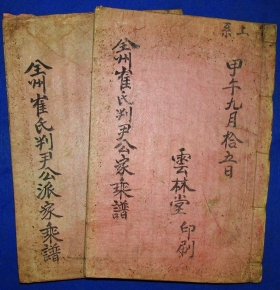 上系
甲午九月拾五日
雲林堂印刷
全州崔氏判尹公家乘譜
全州崔氏判尹公派家乘譜